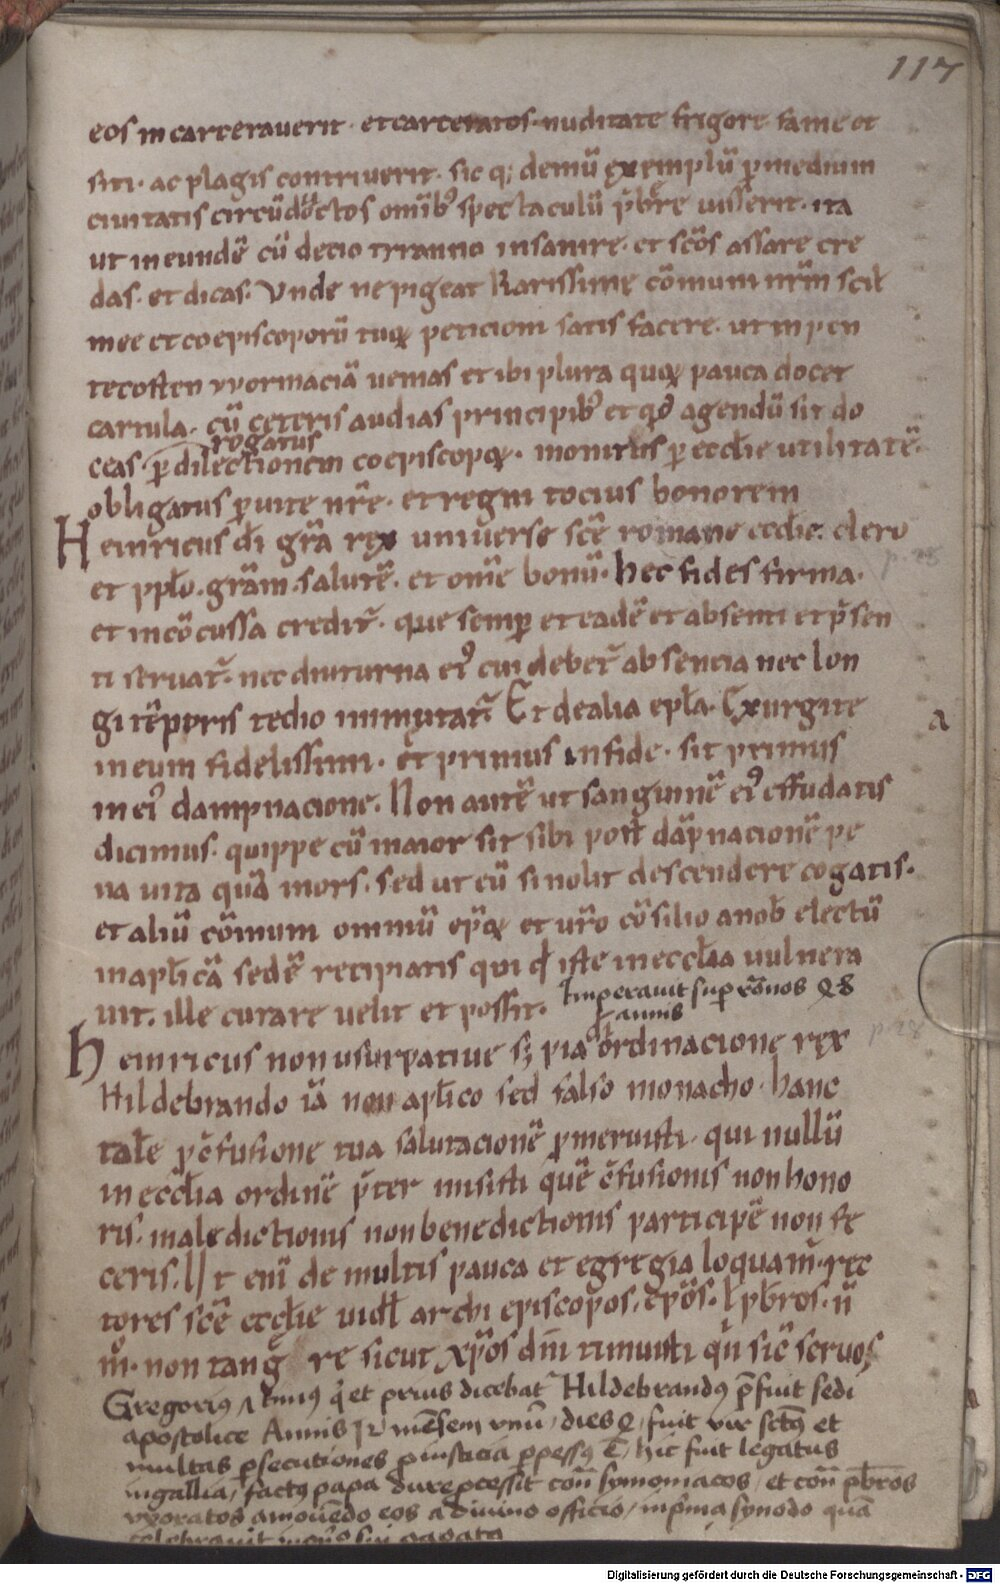 117
eos incarceraverit · et carceratos · nuditate frigore fame et
siti · ac plagis contriverit · sic q; demũ exemplũ p mediũm
civitatis circũductos omib᾽ spectaculũ p̃bere iusserit · ita
ut in eundẽ cũ decio tyranno insanire · et sc̃os assare cre
das · et dicas · Unde ne pigeat karissime cõmuni nr̃m scil
mee et coepiscoporũ tuoꝝ peticioni satis facere · ut in pen
tecosten wormaciã venias et ibi plura quoꝝ pauca docet
cartula · cũ ceteris audias principib᾽ et qd agendũ sit do
rogatus
ceas · p dilectionem coepiscopoꝝ · monitus p eccl̃ie utilitatẽ ·
obligatus p vite nr̃e · et regni tocius honorem
Heinricus dĩ gr̃a rex universe sc̃e romane eccl̃ie · clero
p. 25
et pplo · gr̃am · salutẽ · et omẽ bonũ · hec fides firma ·
et incõcussa credit̃ · que semp et eadẽ et absenti et p̃sen
ti servat̃ · nec diuturna ei᾽ cui debet̃ absencia nec lon
gi tẽporis tedio inmutat̃ Et de alia epl̃a · Exurgite
a
in eum fidelissimi · et primus in fide · sit primus
in ei᾽ dampnacione · Non autẽ ut sanguinẽ ei᾽ effudatis
dicimus · quippe cũ maior sit sibi post dãpnacionẽ pe
na vita quã mors · sed ut eũ si nolit descendere cogatis ·
et aliũ cõmuni omniũ ep̃oꝝ et vr̃o cõsilio a nob̃ electũ
in apl̃icã sedẽ recipiatis qui qd iste in eccl̃ia vulnera
vit · ille curare velit et possit ·
Imperavit sup rõnos
annis
Heinricus non usurpative sꝫ pia ordinacione rex
p. 28
Hildebrando iã non apl̃ico sed falso monacho · hanc
tale p cfusione tua salutacionẽ pmeruisti · qui nullũ
in eccl̃ia ordinẽ p̃ter misisti quẽ cfusionis non hono
ris · maledictionis non benedictionis participẽ non fe
ceris · Ut enĩ de multis pauca et egregia loquam̃ · rec
tores sc̃e eccl̃ie vidl archiepiscopos · ep̃os · l pb̃ros · ñ
m̃ · non tang re sicut xp̃os dñi timuisti qñ sic servos
Gregorius qi et prius dicebat̃ Hildebrandus p̃fuit sedi
apostolice Annis mẽsem unũ / dies / fuit vir sctũs et
multas psecutiones p iusticia ppessus Ẽ hic fuit legatus
in gallia / factus papa dure pcessit contra symoniacos / et contra pb̃ros
uxoratos amovẽdo eos a divino officio / in p̃ma synodo quã
celebravit
Digitalisierung gefördert durch die Deutsche Forschungsgemeinschaft - DFG